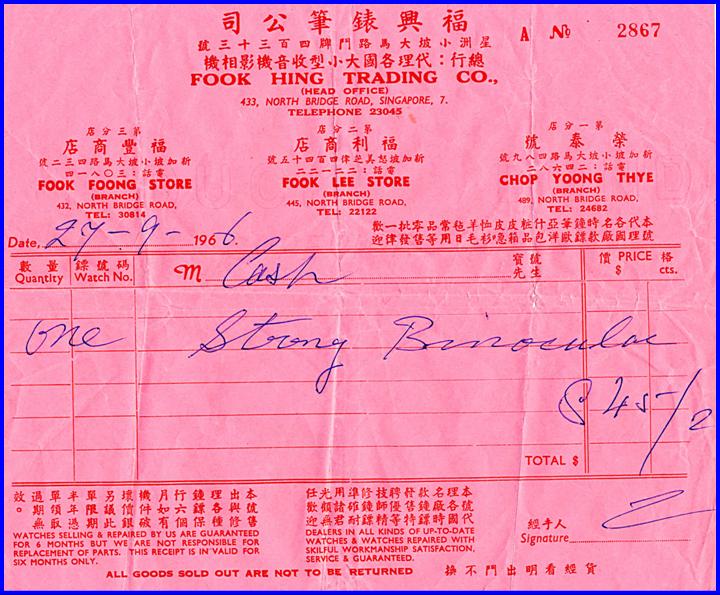 福興錶筆公司
A No 2867
星洲小坡大馬路門牌四百三十三號
總行:代理各國大小型收音機影相機
FOOK HING TRADING CO.,
(HEAD OFFICE)
433, NORTH BRIDGE ROAD, SINGAPORE, 7.
TELEPHONE 23045
第三分店
福豐商店
新加坡小坡大馬路四三二號
電話:三〇八一四
FOOK FOONG STORE
(BRANCH)
432, NORTH BRIDGE ROAD,
TEL: 30814
第二分店
福利商店
新加坡惹美芝律四百四十五號
電話:二二一二二
FOOK LEE STORE
(BRANCH)
445, NORTH BRIDGE ROAD,
TEL: 22122
第一分店
榮泰號
新加坡小坡大馬路四八九號
電話:二四六八二
CHOP YOONG THYE
(BRANCH)
489, NORTH BRIDGE ROAD,
TEL: 24682
Date, 27-9-1966.
本號代理各國名廠時款鐘鏢筆歐亞洋什包粧品皮箱皮喼恤衫羊毛毡日常用品等零售批發一律歡迎
數量 鏢號碼 寶號 價 PRICE 格
Quantity Watch No. M Cash 先生 $ cts.
One Strong Binocular
$ 45-/2
TOTAL $
本號修理與售出各種鐘鏢保行六個月如有機件破壞價銀另議此單限期半年過期無效。
WATCHES SELLING & REPAIRED BY US ARE GUARANTEED
FOR 6 MONTHS BUT WE ARE NOT RESPONSIBLE FOR
REPLACEMENT OF PARTS. THIS RECEIPT IS IN VALID FOR
SIX MONTHS ONLY.
本號代理各國名廠時款鐘鏢發售特聘優等技師精修鐘鏢準確耐用諸君光顧無任歡迎
DEALERS IN ALL KINDS OF UP-TO-DATE
WATCHES & WATCHES REPAIRED WITH
SKILFUL WORKMANSHIP SATISFACTION,
SERVICE & GUARANTEED.
經手人
Signature
ALL GOODS SOLD OUT ARE NOT TO BE RETURNED
貨經看明出門不換